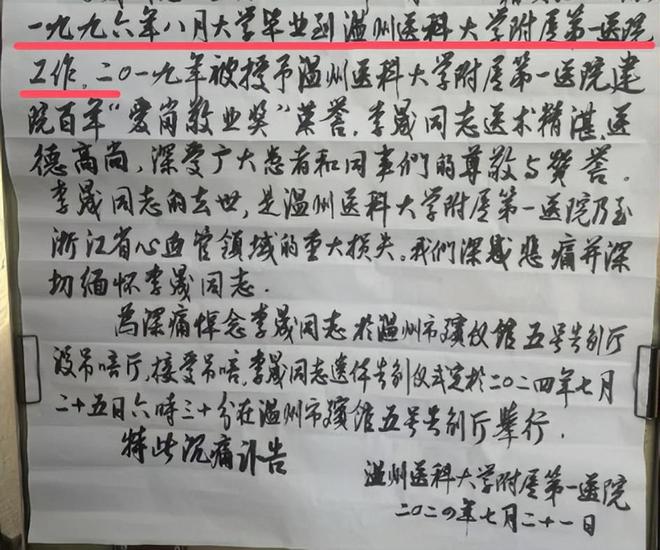 一九九六年八月大学毕业到温州医科大学附属第一医院
工作,二〇一九年被授予温州医科大学附属第一医院建
院百年“爱岗敬业奖”荣誉,李晟同志医术精湛,医
德高尚,深受广大患者和同事们的尊敬与赞誉。
李晟同志的去世,是温州医科大学附属第一医院乃至
浙江省心血管领域的重大损失。我们深感悲痛并深
切缅怀李晟同志.
为深痛悼念李晟同志於温州市殡仪馆五号告别厅
设吊唁厅,接受吊唁,李晟同志遗体告别仪式定於二〇二四年七月
二十五日六時三十分在温州市殡馆五号告别厅举行.
特此沉痛讣告
温州医科大学附属第一医院
二〇二四年七月二十一日